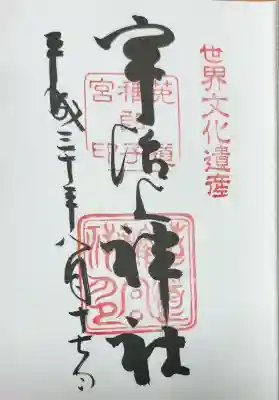 世界文化遺産
宇治上神社
平成三十年八月十七日